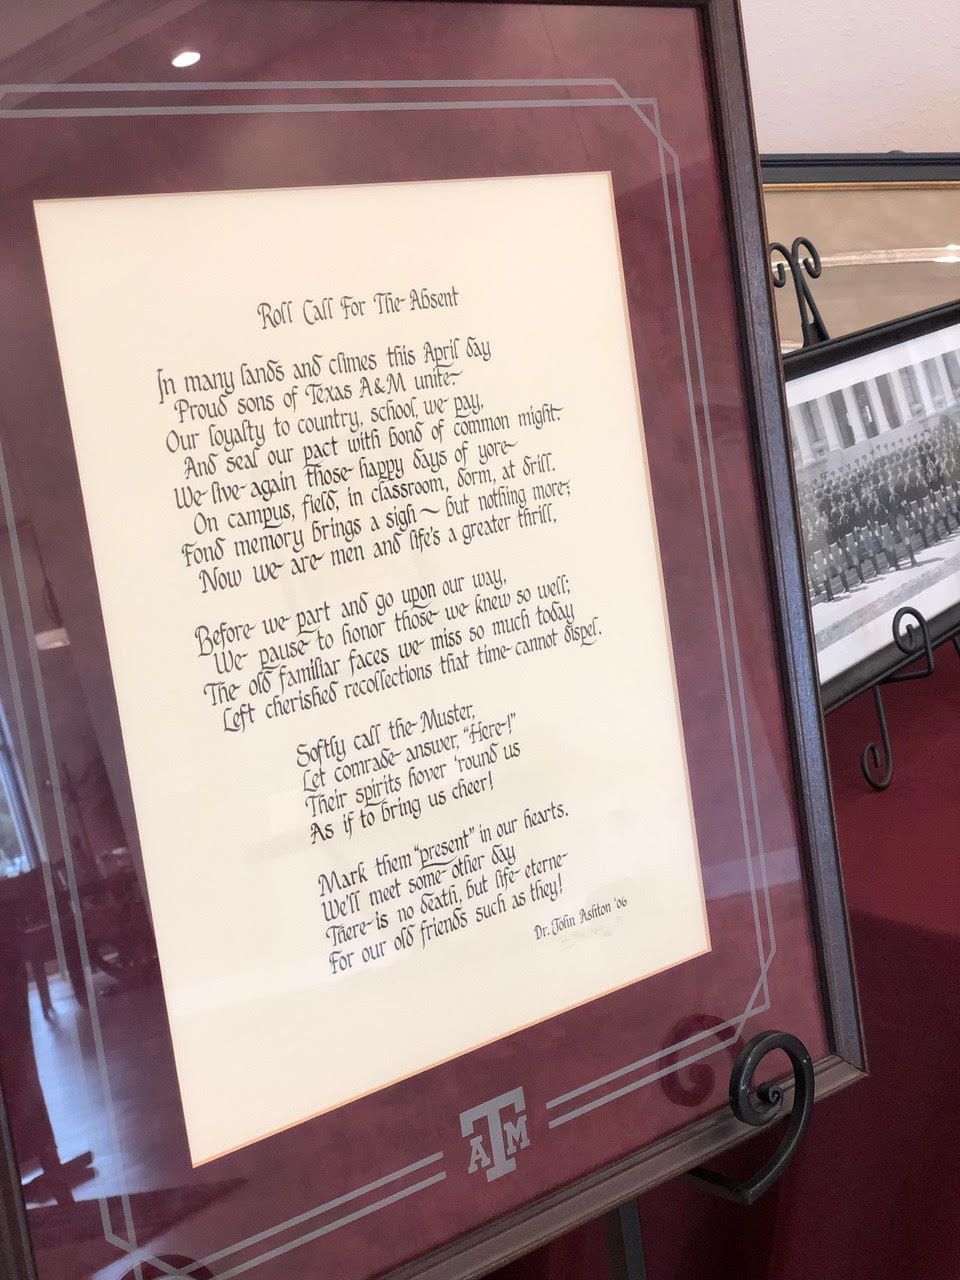 Roll Call For The Absent
In many lands and climes this April day
Proud sons of Texas A&M unite.
Our loyalty to country, school, we pay,
And seal our pact with bond of common might.
We live again those happy days of yore
On campus, field, in classroom, dorm, at drill.
Fond memory brings a sigh ~ but nothing more;
Now we are men and life's a greater thrill.
Before we part and go upon our way,
We pause to honor those we knew so well;
The old familiar faces we miss so much today
Left cherished recollections that time cannot dispel.
Softly call the Muster,
Let comrade answer, "Here!"
Their spirits hover 'round us
As if to bring us cheer!
Mark them "present" in our hearts.
We'll meet some other day
There is no death, but life eterne
For our old friends such as they!
Dr. John Ashton '06
ATM